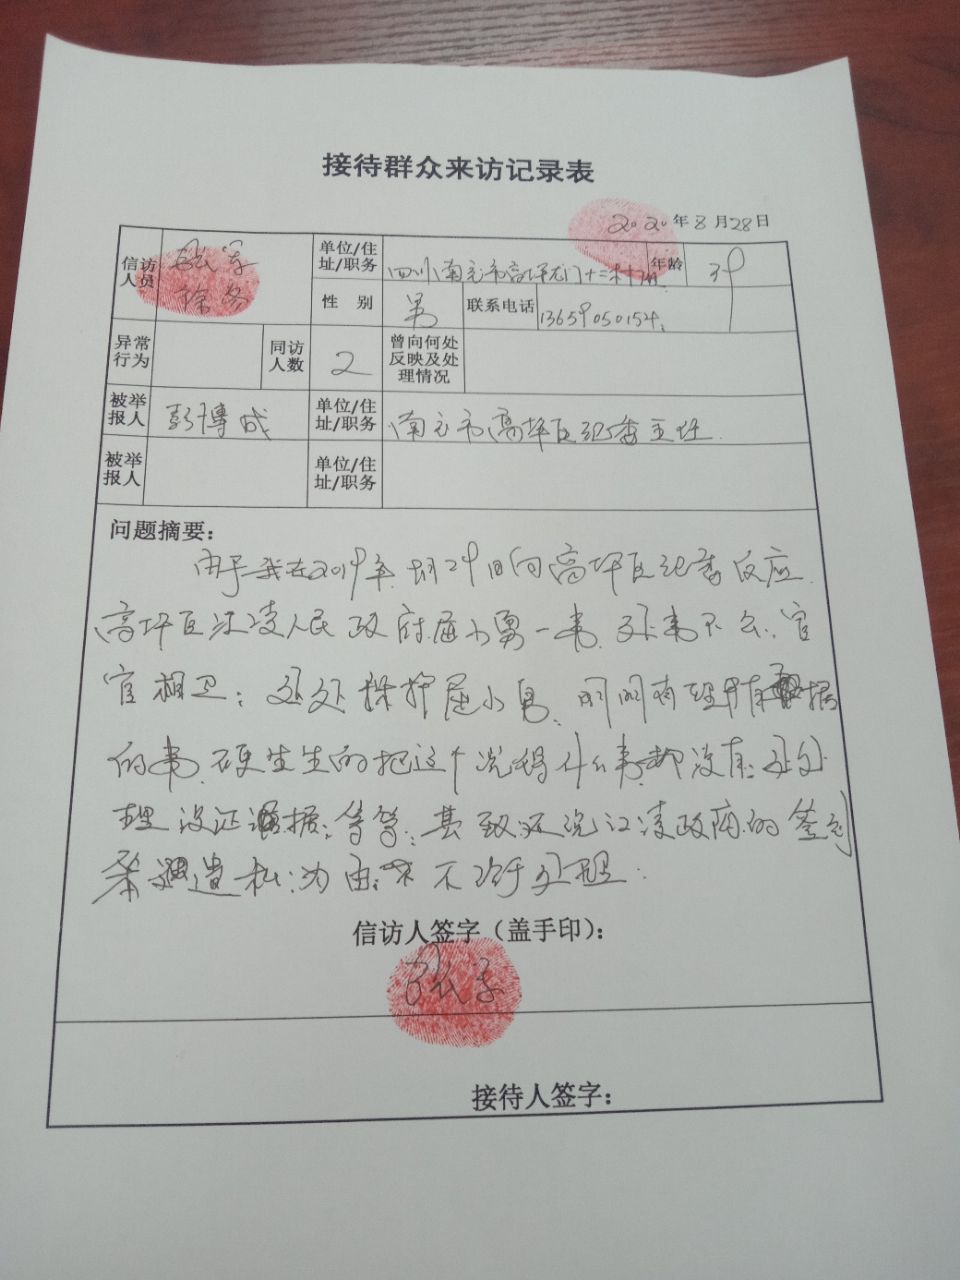 接待群众来访记录表
2020年8月28日
信访人员 单位/住址/职务 四川南充市高坪龙门十三村 年龄 39
徐
性 别 男 联系电话 13659050154
异常行为 同访人数 2 曾向何处反映及处理情况
被举报人 彭博成 单位/住址/职务 南充市高坪区纪委主任
被举报人 单位/住址/职务
问题摘要：
由于我在2019年 月29日向高坪区纪委反应
高坪区江凌人民政府屈小勇一事,处事不公,官
官相卫;处处保护屈小勇,明明有理有据
的事,硬生生的把这个说得什么事都没有,处处
理没证据;等等;甚致还说江凌政府的签到
为由;不 予处理.
信访人签字（盖手印）：
接待人签字：